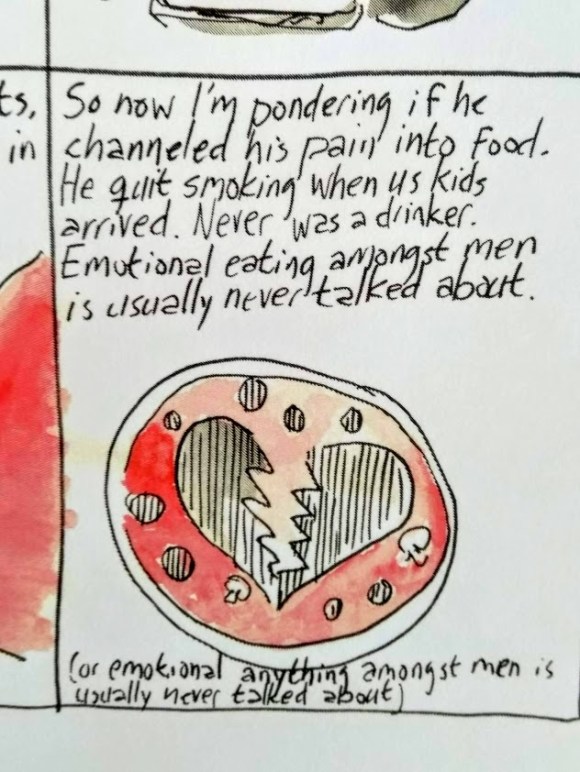 ts,
in
So now I'm pondering if he
channeled his pain into food.
He quit smoking when us kids
arrived. Never was a drinker.
Emotional eating amongst men
is usually never talked about.
(or emotional anything amongst men is
usually never talked about)